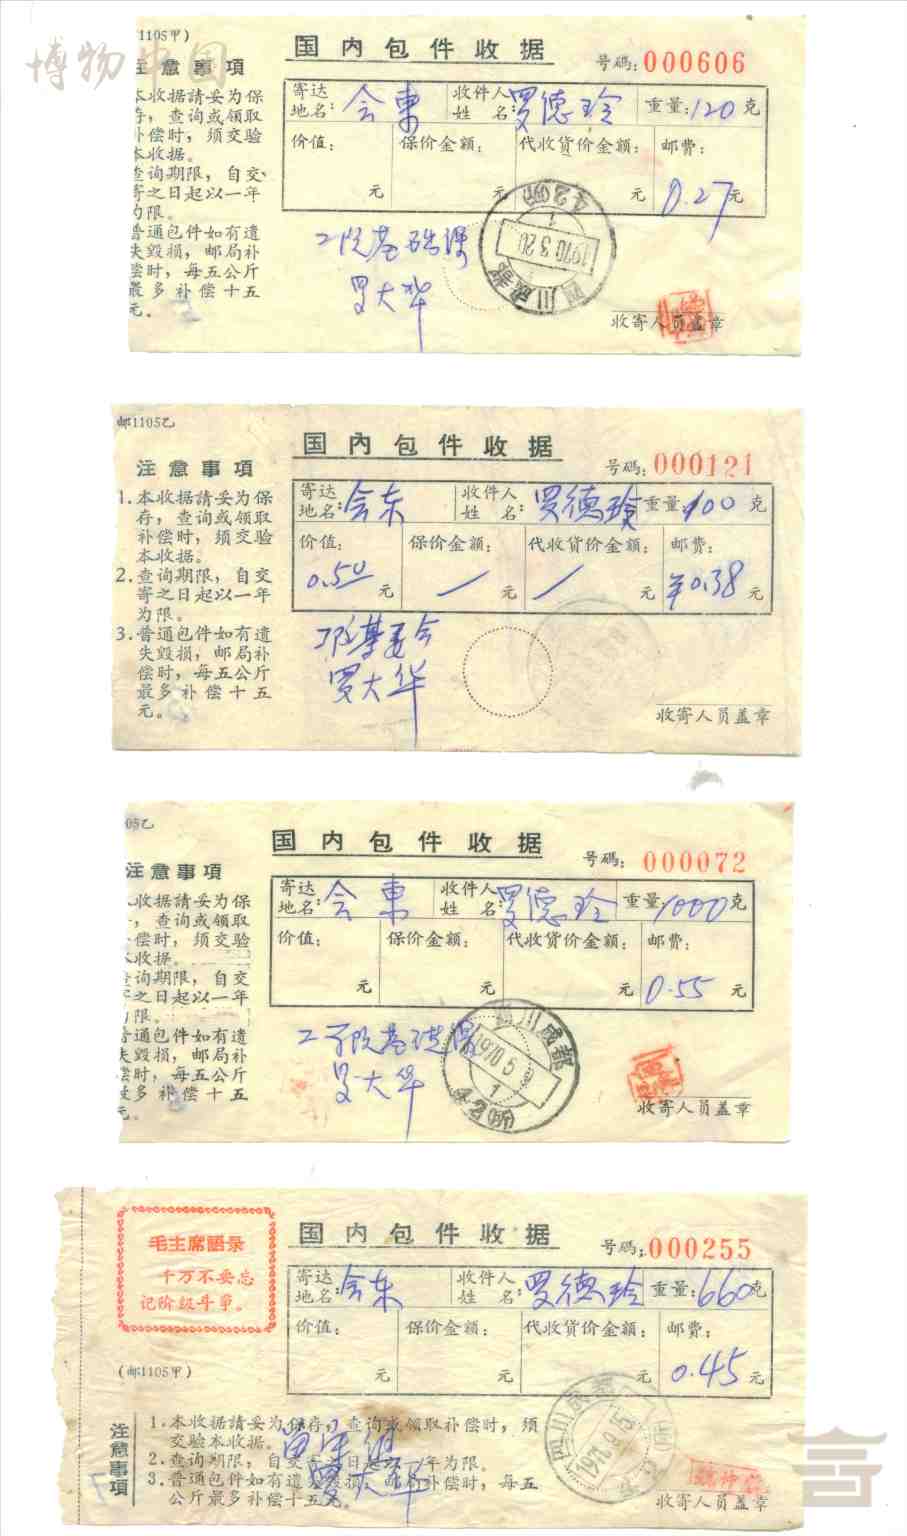 博物中国
1105甲)
国内包件收据
号碼:000606
注意事項
本收据請妥为保
存，查询或领取
补偿时，须交验
本收据。
查询期限，自交
寄之日起以一年
为限。
普通包件如有遺
失毀損，邮局补
偿时，每五公斤
最多补偿十五
元。
寄达地名:会東
收件人姓名:罗德玲
重量:120克
价值: 元
保价金額: 元
代收貨价金額: 元
邮费: 0.27元
罗大华
四川成都
1970.3.20
1
42(所)
收寄人员盖章
邮1105乙
国内包件收据
号碼:000121
注意事項
1.本收据請妥为保
存，查询或领取
补偿时，须交验
本收据。
2.查询期限，自交
寄之日起以一年
为限。
3.普通包件如有遺
失毀損，邮局补
偿时，每五公斤
最多补偿十五
元。
寄达地名:会东
收件人姓名:罗德玲
重量:100克
价值: 0.50元
保价金額: 元
代收貨价金額: 元
邮费: ¥0.38元
罗大华
收寄人员盖章
05乙
国内包件收据
号碼:000072
注意事項
收据請妥为保
，查询或领取
偿时，须交验
本收据。
查询期限，自交
之日起以一年
限。
普通包件如有遺
失毀損，邮局补
偿时，每五公斤
最多补偿十五
元。
寄达地名:会東
收件人姓名:罗德玲
重量:1000克
价值: 元
保价金額: 元
代收貨价金額: 元
邮费: 0.55元
工学院基礎课
罗大华
四川成都
1970.5
1
42(所)
收寄人员盖章
毛主席語录
千万不要忘
记阶級斗争。
国内包件收据
号碼:000255
寄达地名:会东
收件人姓名:罗德玲
重量:660克
价值: 元
保价金額: 元
代收貨价金額: 元
邮费: 0.45元
(邮1105甲)
注意事項
1.本收据請妥为保存，查询或领取补偿时，须
交验本收据。
2.查询期限，自交寄之日起以一年为限。
3.普通包件如有遺失毀損，邮局补偿时，每五
公斤最多补偿十五元。
罗大华
四川成都
收寄人员盖章